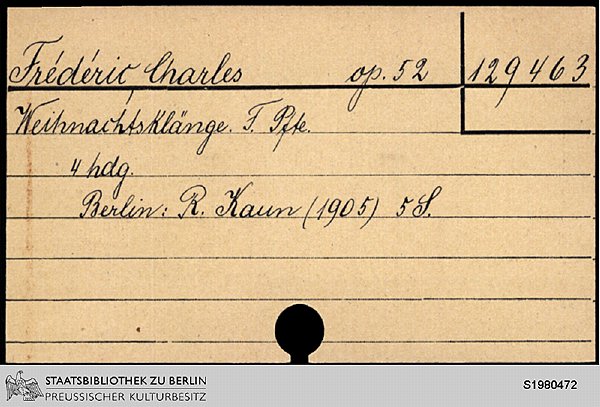 Frédéric, Charles op. 52 129463
Weihnachtsklänge. F. Pfte.
4 hdg.
Berlin: R. Kaun (1905) 5 S.
STAATSBIBLIOTHEK ZU BERLIN
PREUSSISCHER KULTURBESITZ
S1980472